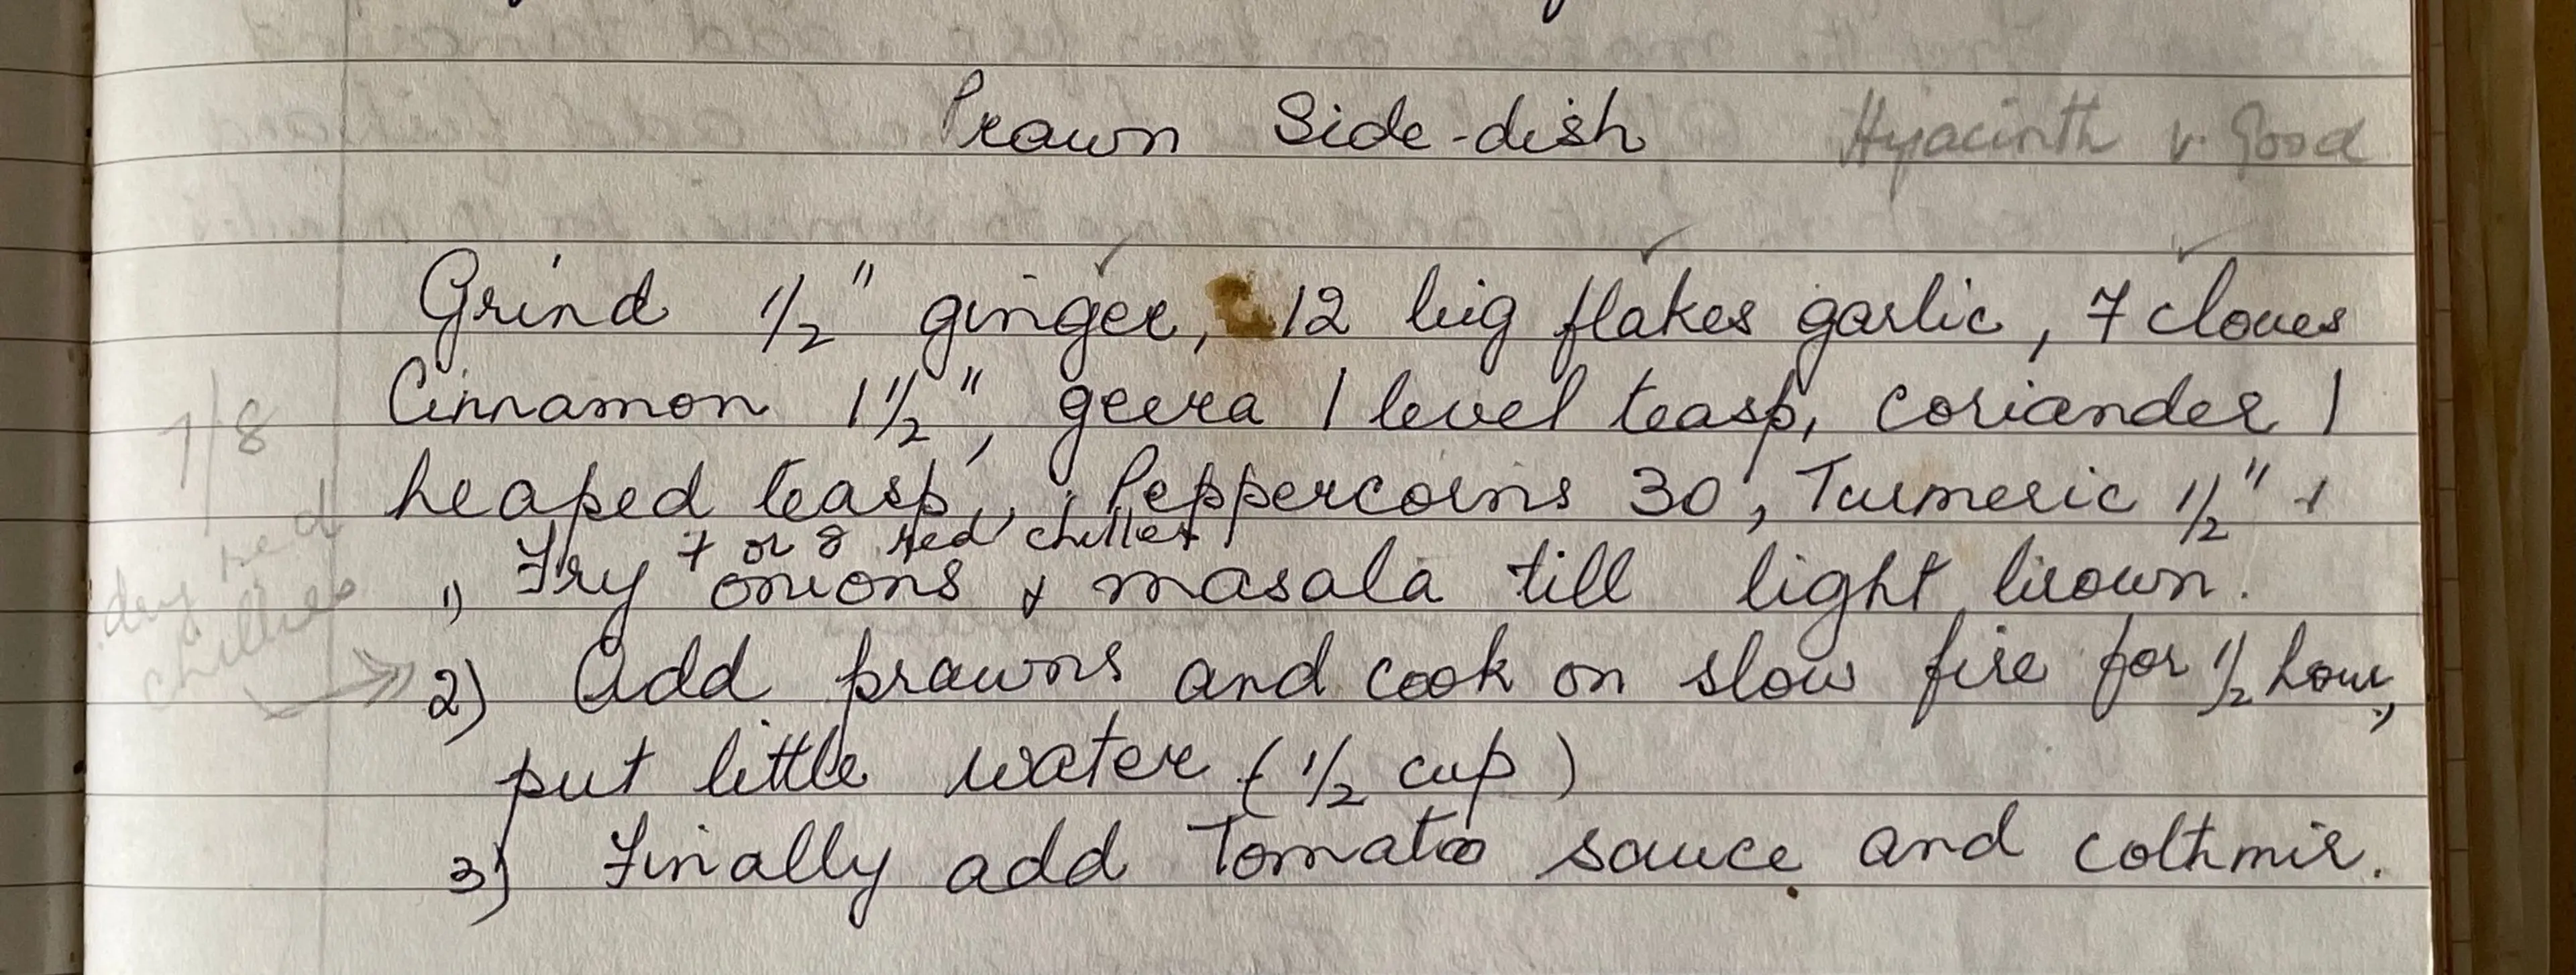 Prawn Side-dish Hyacinth v. Good
Grind 1/2" ginger, 12 big flakes garlic, 7 cloves
Cinnamon 1 1/2", geera 1 level teasp, coriander 1
heaped teasp, Peppercorns 30, Turmeric 1/2" +
7 or 8 red chillies
1) Fry onions & masala till light brown.
7/8
dry red
chillies
2) Add prawns and cook on slow fire for 1/2 hour,
put little water (1/2 cup)
3) Finally add Tomatoo sauce and cothmir.